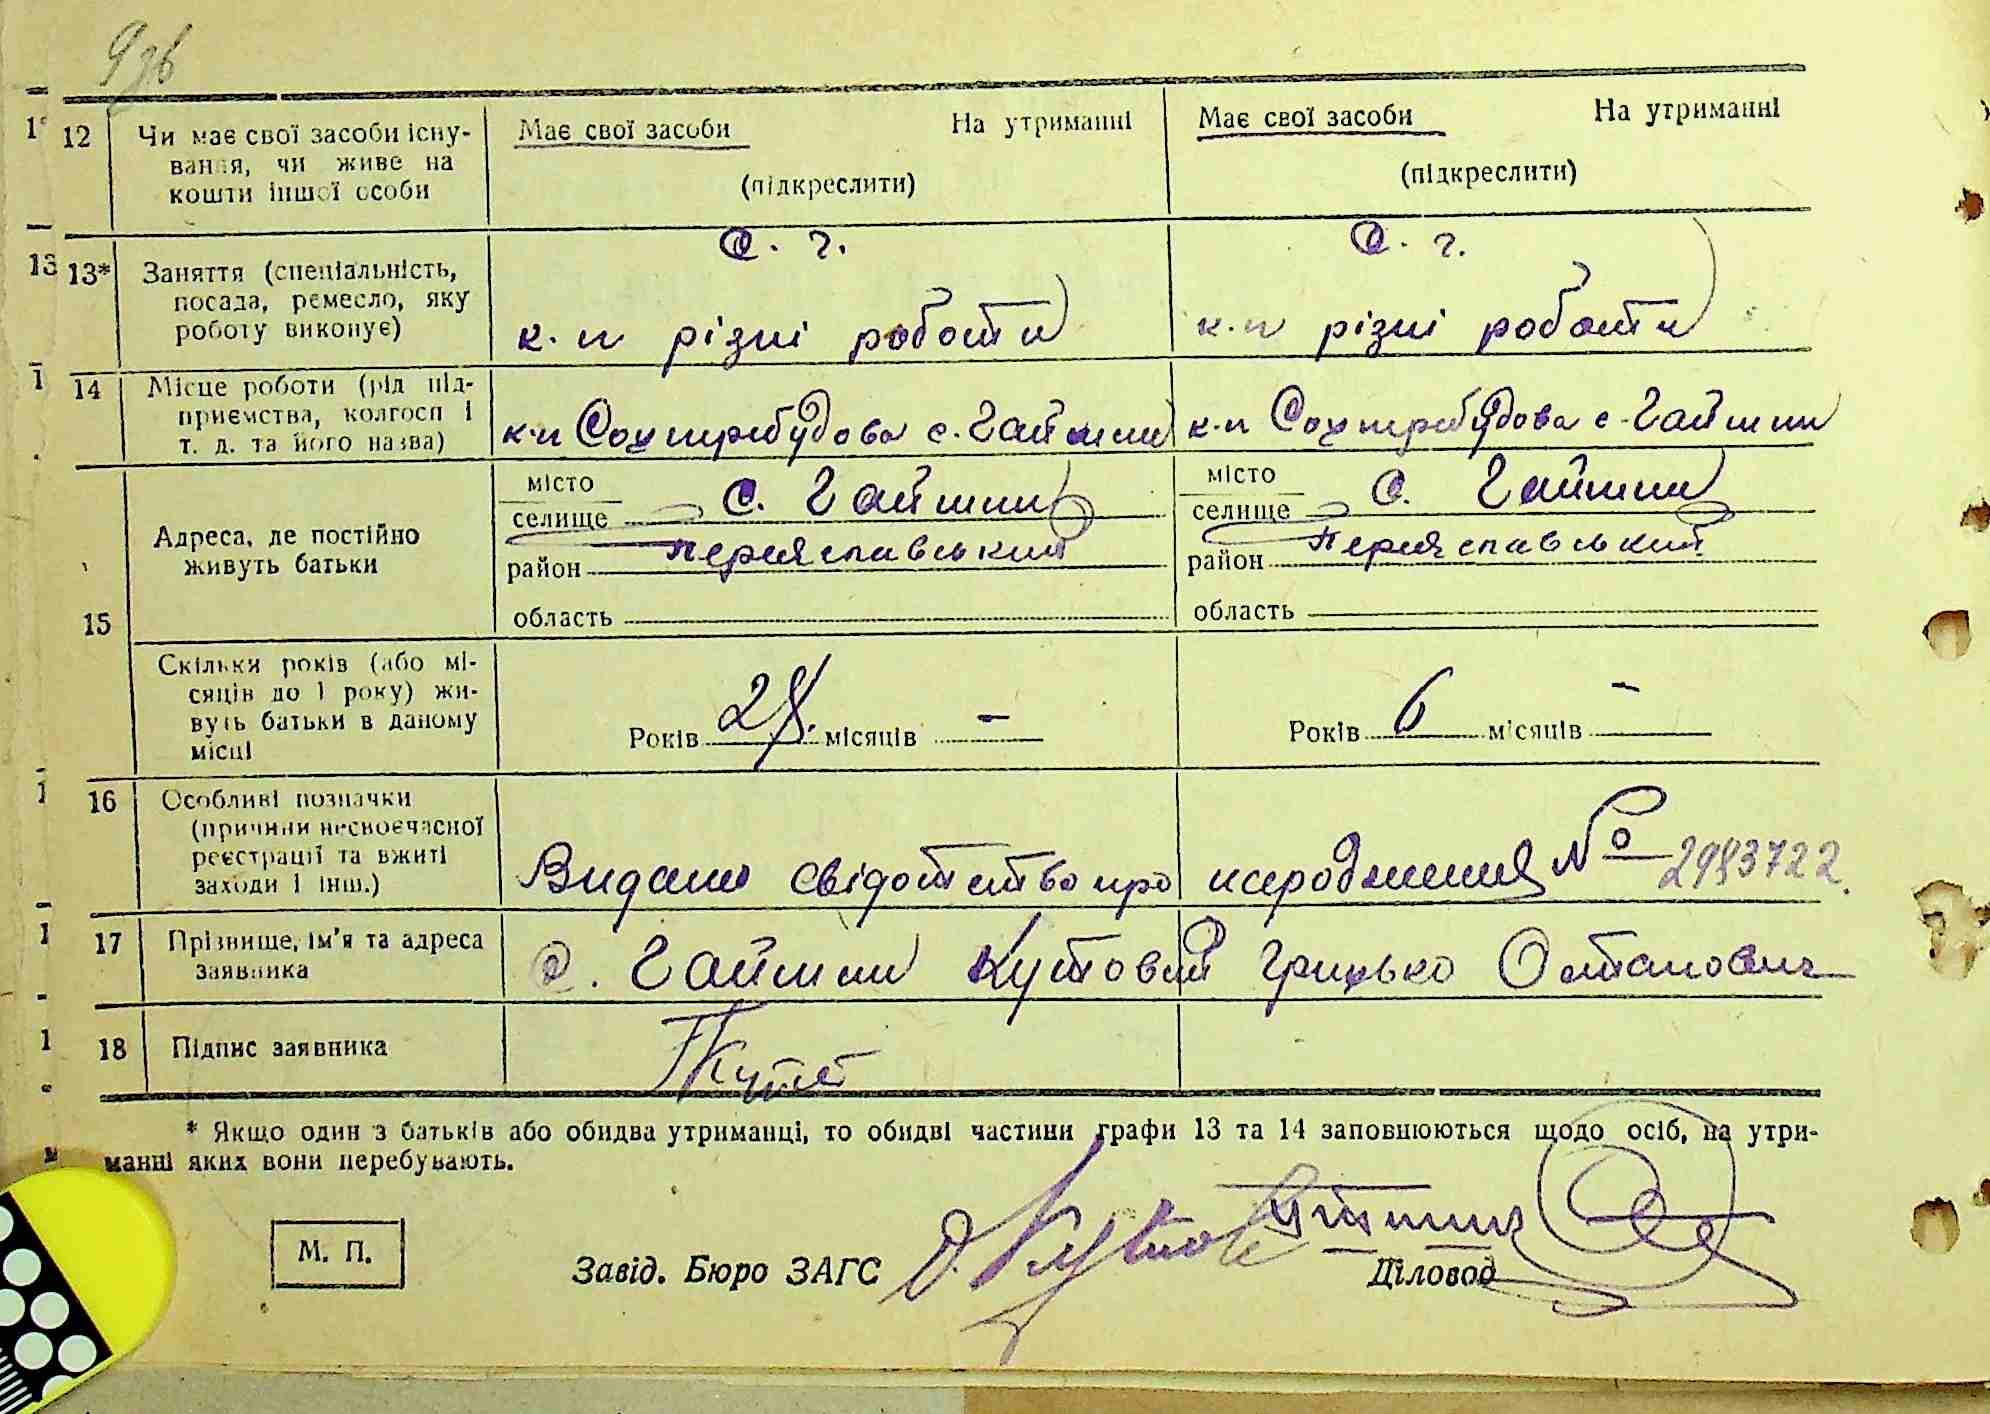 9 зв
12 Чи має свої засоби існу- Має свої засоби На утриманні Має свої засоби На утриманні
вання, чи живе на (підкреслити) (підкреслити)
кошти іншої особи
13* Заняття (спеціальність, с. г. с. г.
посада, ремесло, яку
роботу виконує) к-п різні роботи к-п різні роботи
14 Місце роботи (рід під-
приємства, колгосп і к-п Соцперебудова с. Гайшин к-п Соцперебудова с. Гайшин
т. д. та його назва)
місто с. Гайшин місто с. Гайшин
селище селище
Адреса, де постійно Переяславський Переяславський
живуть батьки район район
область область
15
Скільки років (або мі-
сяців до 1 року) жи-
вуть батьки в даному Років 28. місяців – Років 6 місяців –
місці
16 Особливі позначки
(причини несвоєчасної
реєстрації та вжиті Видано свідотство про народження № 2983722.
заходи і інш.)
17 Прізвище, ім'я та адреса с. Гайшин Кутовий Грицько Остапович
заявника
18 Підпис заявника
* Якщо один з батьків або обидва утриманці, то обидві частини графи 13 та 14 заповнюються щодо осіб, на утри-
манні яких вони перебувають.
М. П. Завід. Бюро ЗАГС Діловод